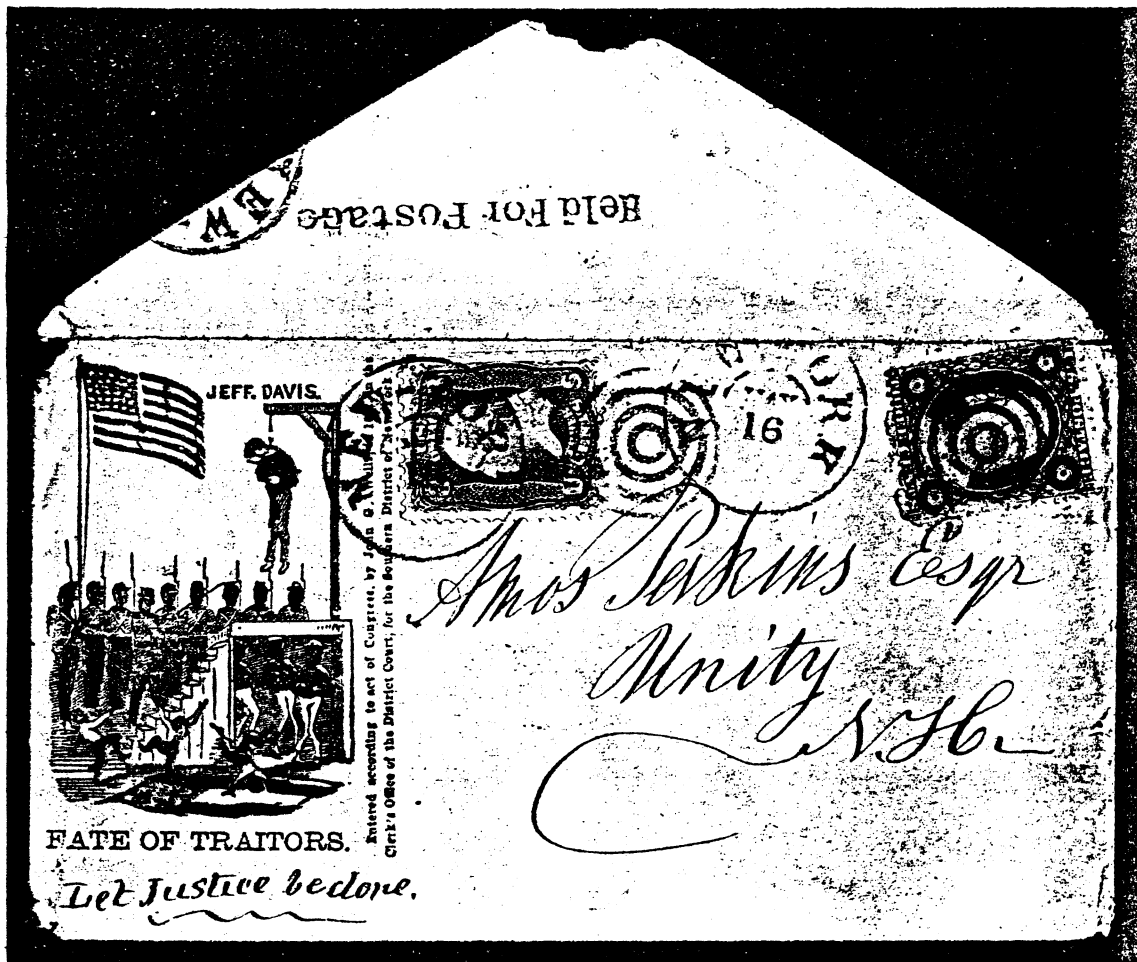 Held For Postage
NEW
JEFF. DAVIS.
NEW YORK
16
Entered according to act of Congress, by John in the
Clerk's Office of the District Court, for the Southern District of New York
Amos Perkins Esqr
Unity
N.H.
FATE OF TRAITORS.
Let Justice be done.